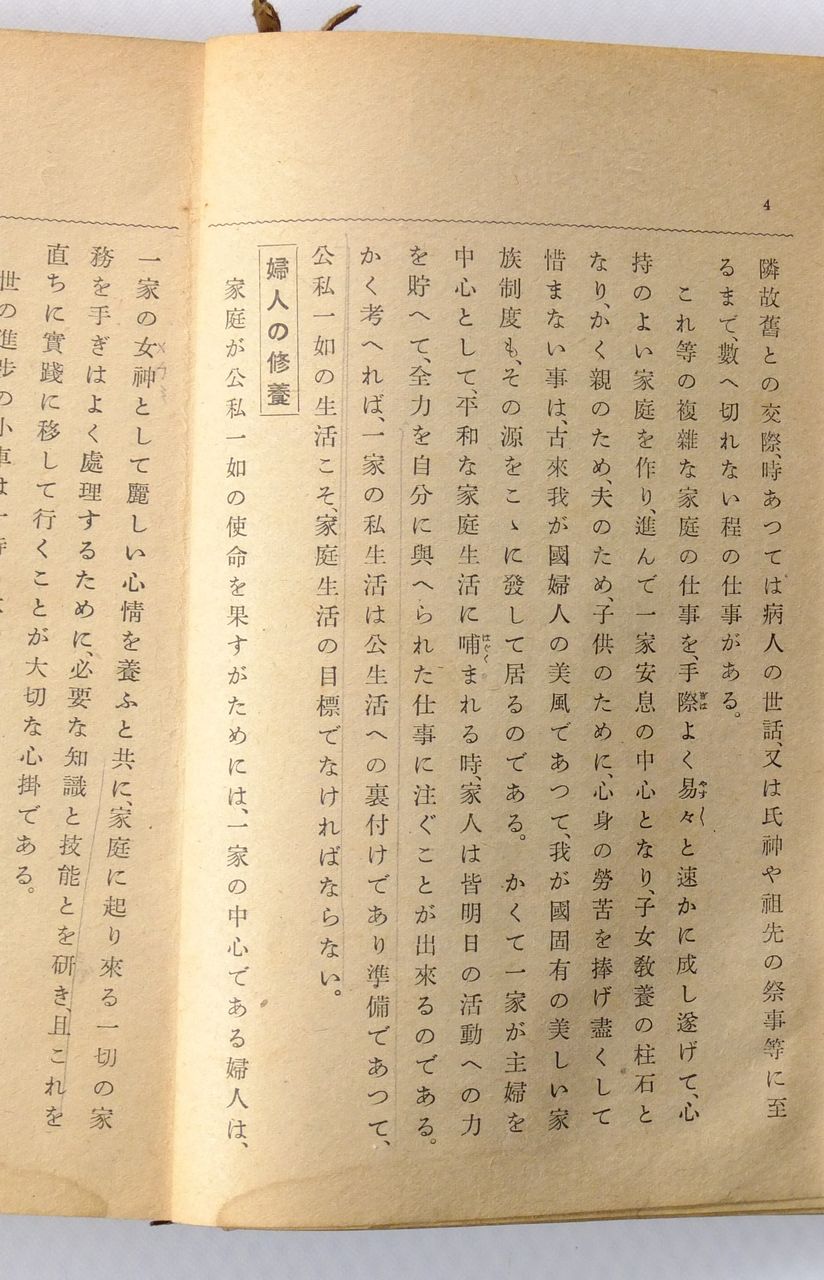 4
隣故舊との交際、時あつては病人の世話、又は氏神や祖先の祭事等に至
るまで、數へ切れない程の仕事がある。
これ等の複雜な家庭の仕事を、手際よく易々と速かに成し遂げて、心
持のよい家庭を作り、進んで一家安息の中心となり、子女敎養の柱石と
なり、かく親のため、夫のため、子供のために、心身の勞苦を捧げ盡くして
惜まない事は、古來我が國婦人の美風であつて、我が國固有の美しい家
族制度も、その源をこゝに發して居るのである。かくて一家が主婦を
中心として、平和な家庭生活に哺まれる時、家人は皆明日の活動への力
を貯へて、全力を自分に與へられた仕事に注ぐことが出來るのである。
かく考へれば、一家の私生活は公生活への裏付けであり準備であつて、
公私一如の生活こそ、家庭生活の目標でなければならない。
婦人の修養
家庭が公私一如の使命を果すがためには、一家の中心である婦人は、
一家の女神として麗しい心情を養ふと共に、家庭に起り來る一切の家
務を手ぎはよく處理するために、必要な知識と技能とを研き、且これを
直ちに實踐に移して行くことが大切な心掛である。
世の進歩の